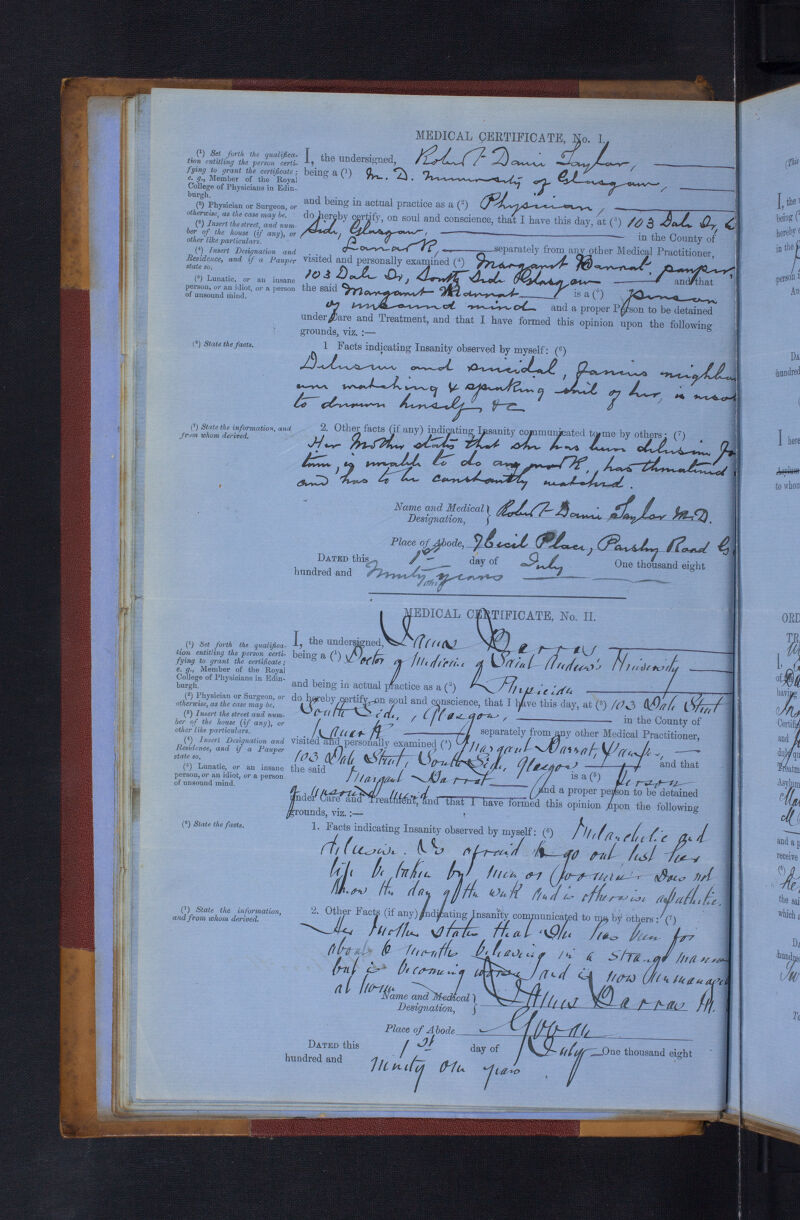 MEDICAL CERTIFICATE, No. I.
(¹) Set forth the qualifica-
tion entitling the person certi-
fying to grant the certificate;
e. g., Member of the Royal
College of Physicians in Edin-
burgh.
(²) Physician or Surgeon, or
otherwise, as the case may be.
(³) Insert the street, and num-
ber of the house (if any), or
other like particulars.
(⁴) Insert Designation and
Residence, and if a Pauper
state so.
(⁵) Lunatic, or an insane
person, or an idiot, or a person
of unsound mind.
I, the undersigned, Robert Taylor,
being a (¹) M. D. University of Glasgow,
and being in actual practice as a (²) Physician,
do hereby certify, on soul and conscience, that I have this day, at (³) 103 Dale St,
Side, Glasgow, in the County of
Lanark separately from any other Medical Practitioner,
visited and personally examined (⁴) Margaret Barrat, pauper
103 Dale St, South Side Glasgow and that
the said Margaret Barrat is a (⁵) person
of unsound mind and a proper Person to be detained
under Care and Treatment, and that I have formed this opinion upon the following
grounds, viz. :—
(⁶) State the facts.
1 Facts indicating Insanity observed by myself: (⁶)
Delusive and suicidal, fancies
are watching & speaking evil of her, is
to drown herself &c
(⁷) State the information, and
from whom derived.
2. Other facts (if any) indicating Insanity communicated to me by others: (⁷)
Her Mother states that she has been delusive
time, is unable to do any work, has threatened
and has to be constantly watched.
Name and Medical
Designation, Robert Taylor M.D.
Place of Abode, 7 Cecil Place, Paisley Road
DATED this 1st day of July One thousand eight
hundred and Ninety one years
MEDICAL CERTIFICATE, No. II.
(¹) Set forth the qualifica-
tion entitling the person certi-
fying to grant the certificate;
e. g., Member of the Royal
College of Physicians in Edin-
burgh.
(²) Physician or Surgeon, or
otherwise, as the case may be.
(³) Insert the street and num-
ber of the house (if any), or
other like particulars.
(⁴) Insert Designation and
Residence, and if a Pauper
state so.
(⁵) Lunatic, or an insane
person, or an idiot, or a person
of unsound mind.
I, the undersigned, James Barras
being a (¹) Doctor of Medicine of Saint Andrew's University
and being in actual practice as a (²) Physician
do hereby certify, on soul and conscience, that I have this day, at (³) 103 Dale Street
South Side, Glasgow, in the County of
Lanark separately from any other Medical Practitioner,
visited and personally examined (⁴) Margaret Barrat, Pauper,
103 Dale Street, South Side, Glasgow and that
the said Margaret Barrat is a (⁵) person
of unsound mind and a proper person to be detained
under Care and Treatment, and that I have formed this opinion upon the following
grounds, viz. :—
(⁶) State the facts.
1. Facts indicating Insanity observed by myself: (⁶) Melancholic and
delusive. Is afraid to go out lest her
life be taken by men or women. Does not
know the day of the week and is otherwise apathetic.
(⁷) State the information,
and from whom derived.
2. Other Facts (if any) indicating Insanity communicated to me by others: (⁷)
Her mother states that she has been for
about 6 months behaving in a strange manner
but is becoming worse and is now
at home
Name and Medical
Designation, James Barras M.
Place of Abode Govan
DATED this 1st day of July One thousand eight
hundred and ninety one years